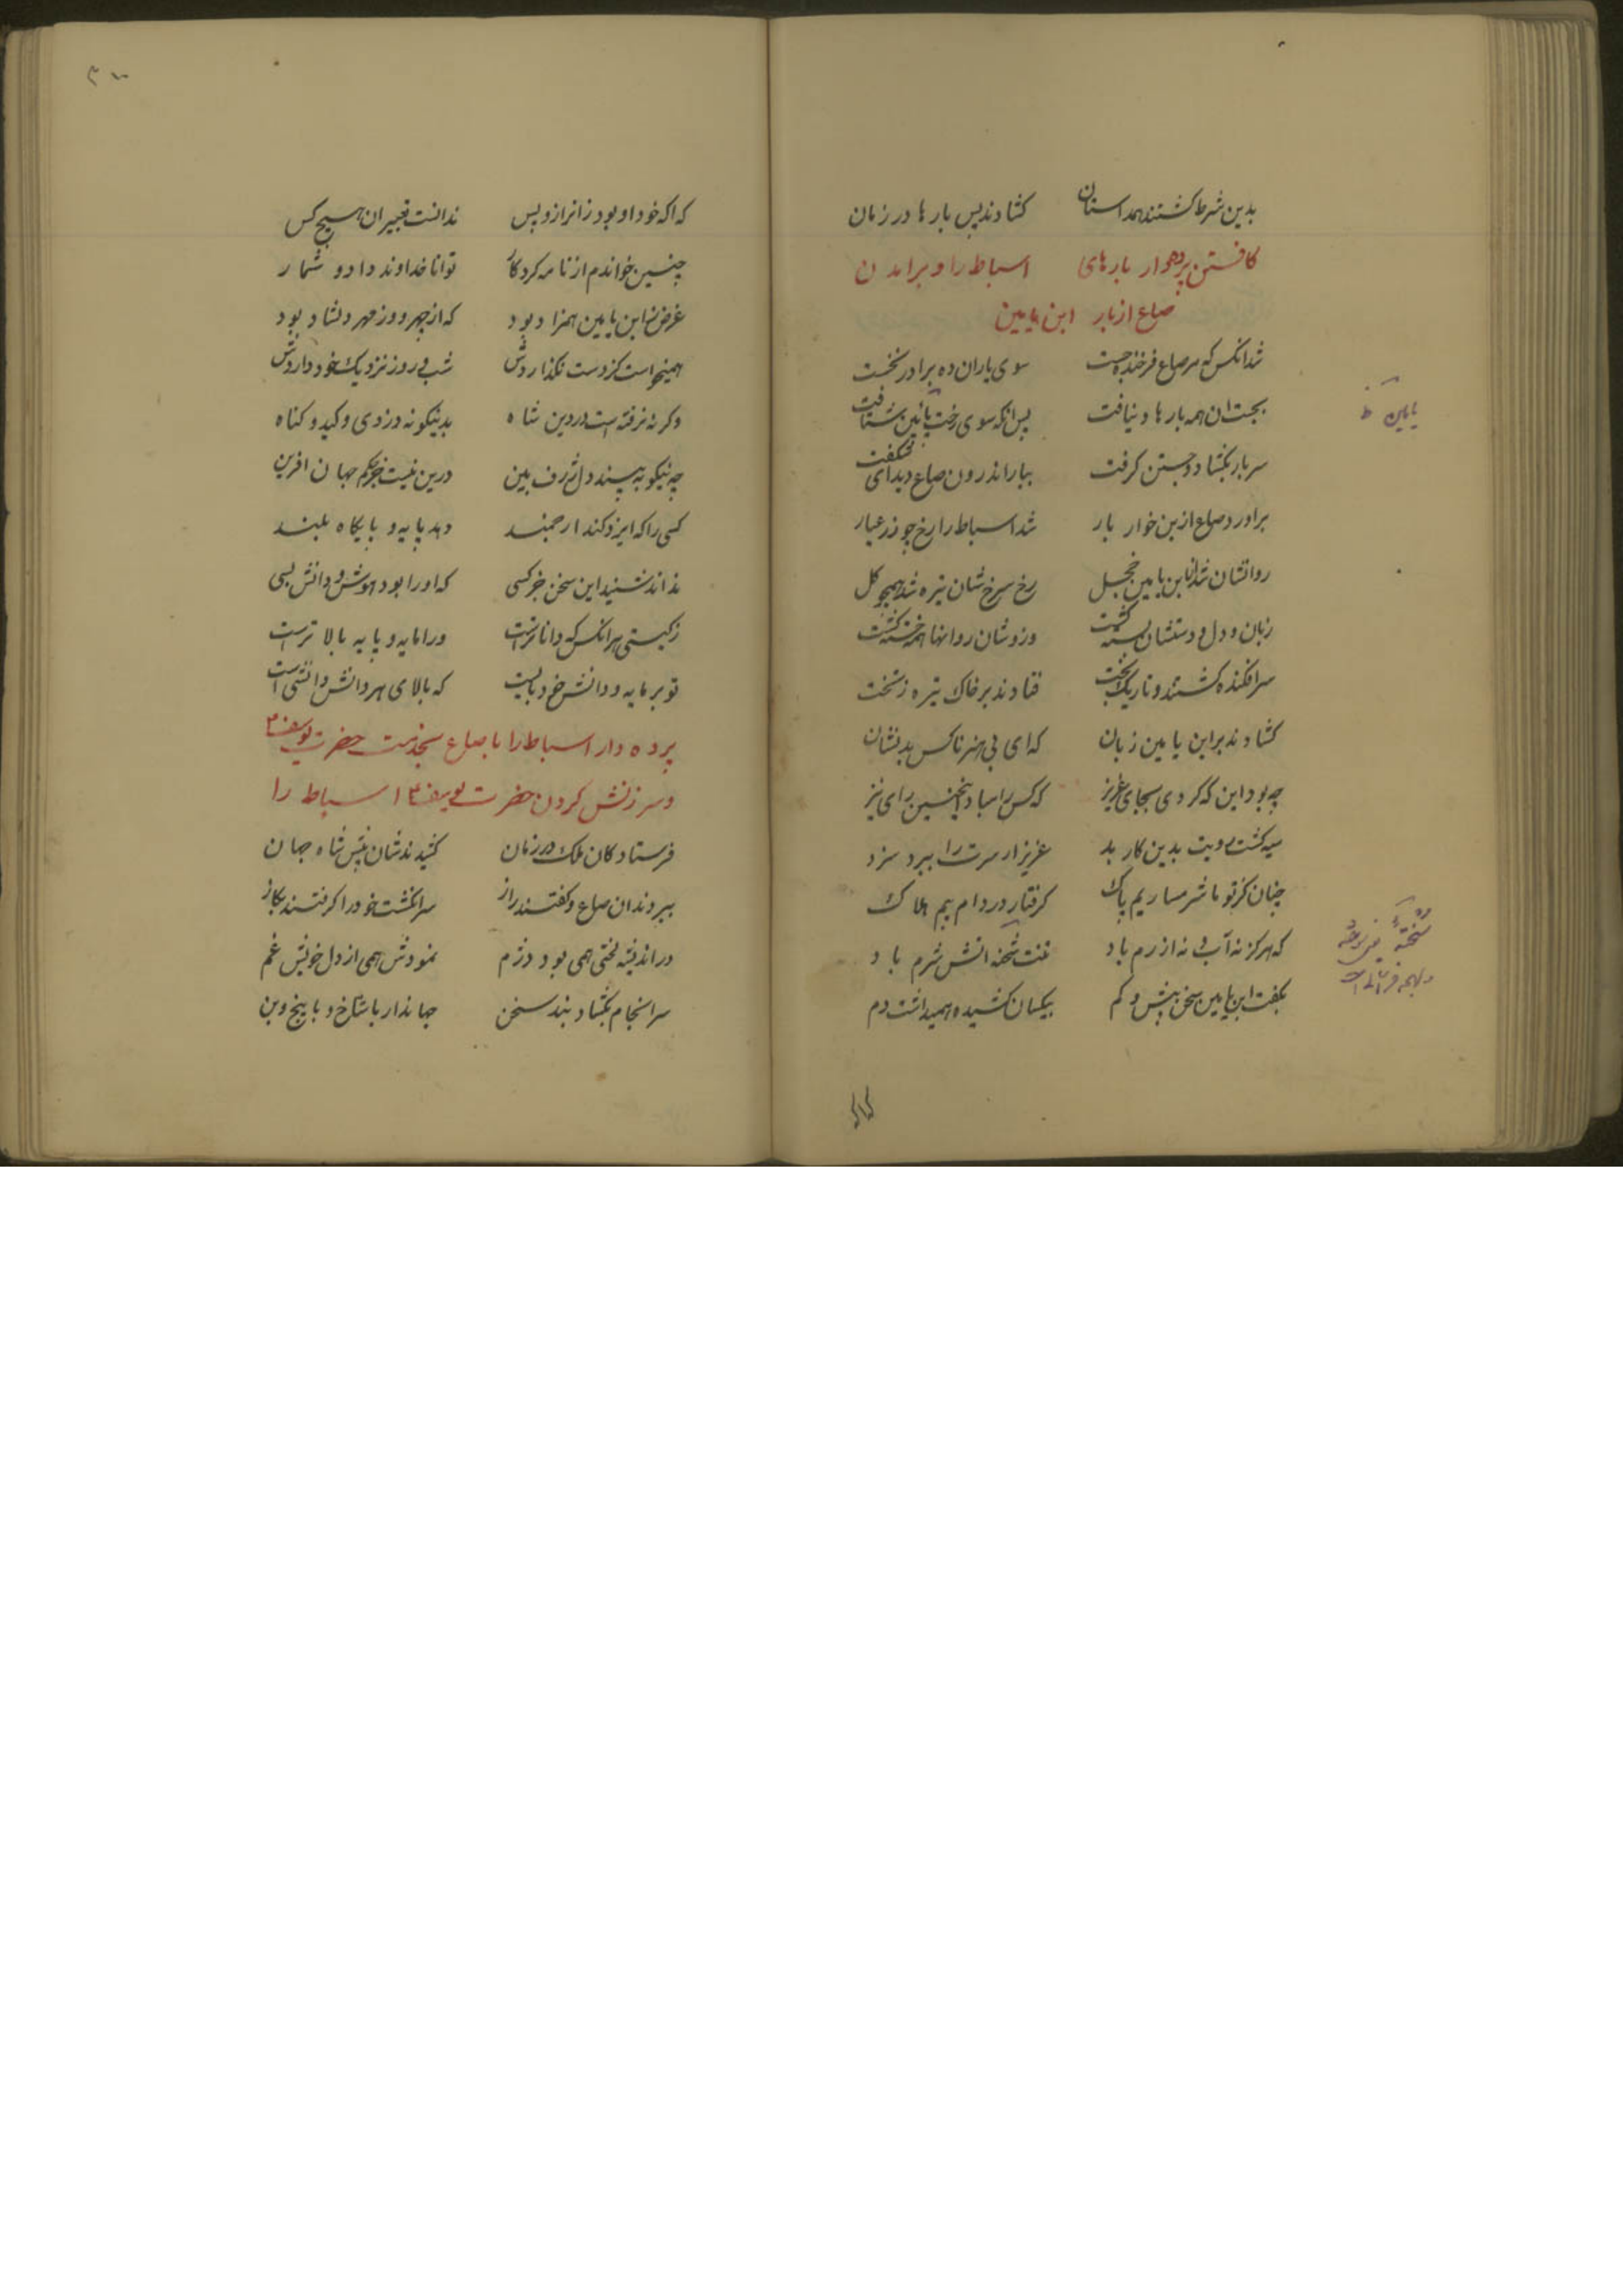 بدین شرط گشتند همداستان گشادند پس بارها در زمان
کافتن پرده‌دار بارهای اسباط را و برامدن
صاع از بار ابن یامین
شد انکس که مر صاع فرخنده جست سوی باران ده برادر نخست
بجست ان همه بارها و نیافت پس انگه سوی رخت یامین شتافت
سر بار بگشاد و جستن گرفت ببار اندرون صاع دید ای شگفت
براورد صاع از بن خوار بار شد اسباط را رخ چو زر عیار
روانشان شد از ابن یامین خجل رخ سرخشان تیره شد همچو گل
زبان و دل و دستشان بسته گشت وزوشان روانها همه خسته گشت
سرافکنده گشتند و تاریک بخت فتادند بر خاک تیره ز تخت
گشادند بر ابن یامین زبان که ای بی هنر ناکس بدنشان
چه بود این که کردی بجای عزیز که کس را مباد اینچنین رای نیز
سیه گشت رویت بدین کار بد عزیز ار سرت را ببرد سزد
چنان کز تو ما شرمساریم پاک گرفتار در دام بیم هلاک
که هرگز نه آب و نه ازرم باد تنت شخنه اتش شرم باد
نگفت ابن یامین سخن بیش و کم بیکسان کشیده همیداشت دم
یامین ظ
که اگه خود او بود زان راز و بس ندانست تعبیر ان هیچ کس
چنین خواندم از نامه کردگار توانا خداوند دادو شمار
غرض ز ابن یامین همزاد بود که از چهر و وز مهر دلشاد بود
همیخواست کز دست نگذاردش شب و روز نزدیک خود داردش
وگرنه نرفته است در دین شاه بدینگونه دزدی و کید و گناه
چه نیکو به بیند دل ژرف بین درین نیست جز حکم جهان افرین
کسی را که ایزد کند ارجمند دهد پایه و پایگاه بلند
نداند شنید این سخن جز کسی که او را بود هوش و دانش بسی
ز گیتی هر انکس که داناترست ورا مایه و پایه بالاترست
تو بر مایه و دانش خود بایست که بالای هر دانش دانشی است
پرده دار اسباط را با صاع بخدمت حضرت یوسف ع
و سرزنش کردن حضرت یوسف ع اسباط را
فرستادگان ملک در زمان کشیدندشان پیش شاه جهان
ببردند ان صاع و گفتند راز سرانگشت خود را گرفتند بگاز
در اندیشه لختی همی بود دژم نمودش همی از دل خویش غم
سرانجام بگشاد بند سخن جهاندار با شاخ و با بیخ و بن